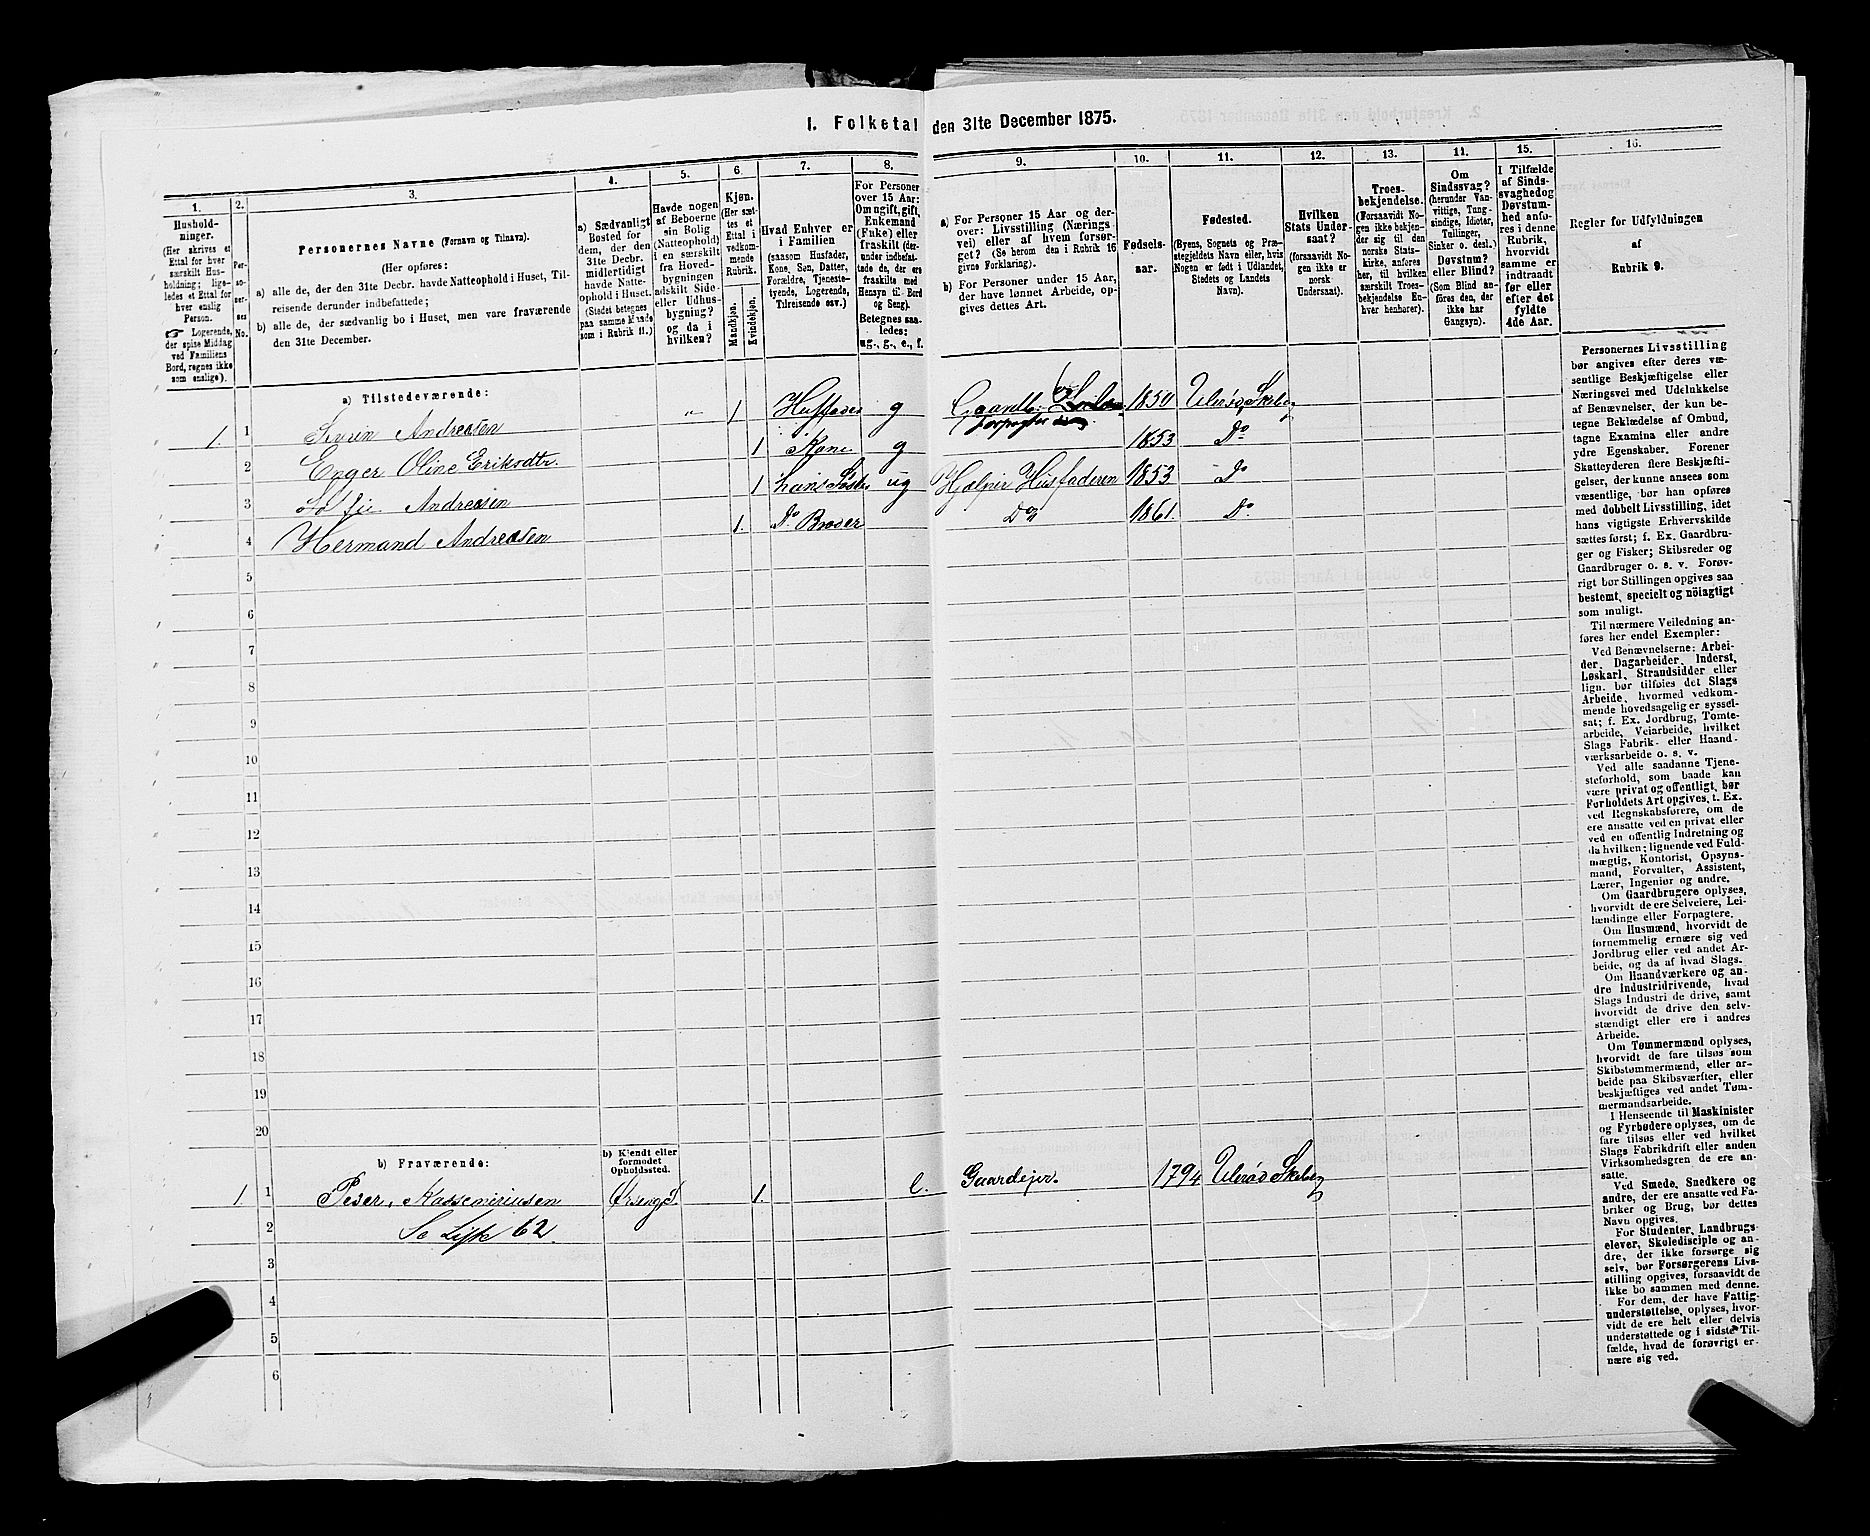 1. Folketal den 31te December 1875.
1.
Hushold-
ninger.
(Her skrives et
Ettal for hver
særskilt Hus-
holdning; lige-
ledes et Ettal for
hver enslig
Person.
☞ Logerende,
der spise Middag
ved Familiens
Bord, regnes ikke
som enslige).
2.
Per-
so-
ner-
nes
No.
3.
Personernes Navne (Fornavn og Tilnavn).
(Her opføres:
a) alle de, der den 31te Decbr. havde Natteophold i Huset, Til-
reisende derunder indbefattede;
b) alle de, der sædvanlig bo i Huset, men vare fraværende
den 31te December.
4.
a) Sædvanligt
Bosted for
dem, der den
31te Decbr.
midlertidigt
havde Natte-
ophold i Huset.
(Stedet betegnes
paa samme Maade
som i Rubrik 11.)
5.
Havde nogen
af Beboerne
sin Bolig
(Natteophold)
i en særskilt
fra Hoved-
bygningen
adskilt Side-
eller Udhus-
bygning?
og da i
hvilken?
6.
Kjøn.
(Her sæt-
tes et
Ettal i
vedkom-
mende
Rubrik.
Mandkjøn.
Kvindekjøn.
7.
Hvad Enhver er
i Familien
(saasom Husfader,
Kone, Søn, Datter,
Forældre, Tjeneste-
tyende, Logerende,
Tilreisende osv.)
8.
For Personer
over 15 Aar:
Om ugift, gift,
Enkemand
(Enke) eller
fraskilt (der-
under indbefat-
tede de, der ere
fraskilte med
Hensyn til Bord
og Seng).
Betegnes saa-
ledes:
ug., g., e., f.
9.
a) For Personer 15 Aar og der-
over: Livsstilling (Nærings-
vei) eller af hvem forsør-
get? (Se herom den i Rubrik 16
givne Forklaring).
b) For Personer under 15 Aar,
der have lønnet Arbeide, op-
gives dettes Art.
10.
Fødsels-
aar.
11.
Fødested.
(Byens, Sognets og Præ-
stegjeldets Navn eller, hvis
Nogen er født i Udlandet,
Stedets og Landets
Navn).
12.
Hvilken
Stats Under-
saat?
(forsaavidt No-
gen ikke er
norsk
Undersaat).
13.
Troes-
bekjendelse.
(Forsaavidt No-
gen ikke bekjen-
der sig til den
norske Stats-
kirke, anføres
her, til hvilken
særskilt Troes-
bekjendelse En-
hver henhører).
14.
Om
Sindssvag?
(herunder Van-
vittige, Tung-
sindige, Idioter,
Tullinger,
Sinker o. desl.)
Døvstum?
eller Blind?
(Som Blind an-
føres den, der
ikke har
Gangsyn).
15.
I Tilfælde
af Sinds-
svaghed og
Døvstum-
hed anfø-
res i denne
Rubrik,
hvorvidt
samme er
indtraadt
før eller
efter det
fyldte
4de Aar.
16.
Regler for Udfyldningen
af
Rubrik 9.
a) Tilstedeværende:
1. 1 Severin Andreasen „ 1 Husfader g Gaardb: 1850 Ulerød, Skeberg
Forpagter
2 Enger Oline Eriksdtr. 1 Kone g 1853 Do
3 Sofie Andreasen 1 hans Søster ug Hjælper Husfaderen 1853 Do
4 Hermand Andreasen 1. Do Broder Do 1861. Do
5
6
7
8
9
10
11
12
13
14
15
16
17
18
19
20
b) Fraværende:
b) Kjendt eller
formodet
Opholdssted.
1. 1 Peder, 1. e. Gaardejer. 1794 Ulerød Skeberg
2 Se Liste 62.
3
4
5
6
Personernes Livsstilling
bør angives efter deres væ-
sentlige Beskjæftigelse eller
Næringsvei med Udelukkelse
af Benævnelser, der kun be-
tegne Beklædelse af Ombud,
tagne Examina eller andre
ydre Egenskaber. Forener
Skatteyderen flere Beskjæfti-
gelser, der kunne ansees som
væsentlige, bør han opføres
med dobbelt Livsstilling, idet
hans vigtigste Erhvervskilde
sættes først; f. Ex. Gaardbru-
ger og Fisker; Skibsreder og
Gaardbruger o. s. v. Forøv-
rigt bør Stillingen opgives saa
bestemt, specielt og nöiagtigt
som muligt.
Til nærmere Veiledning an-
føres her endel Exempler:
Ved Benævnelserne: Arbei-
der, Dagarbeider, Inderst,
Løskarl, Strandsidder eller
lign. bør tilføies det Slags
Arbeide, hvormed vedkom-
mende hovedsagelig er syssel-
sat; f. Ex. Jordbrug, Tomte-
arbeide, Veiarbeide, hvilket
Slags Fabrik- eller Haand-
værksarbeide o. s. v.
Ved alle saadanne Tjene-
steforhold, som baade kan
være privat og offentligt, bør
Forholdets Art opgives, t. Ex.
ved Regnskabsførere, om de
ere ansatte ved en privat eller
ved en offentlig Indretning og
da hvilken; lignende ved Fuld-
mægtig, Kontorist, Opsyns-
mand, Forvalter, Assistent,
Lærer, Ingeniør og andre.
Om Gaardbrugere oplyses,
hvorvidt de ere Selveiere, Lei-
lændinge eller Forpagtere.
Om Husmænd, hvorvidt de
fornemmelig ernære sig ved
Jordbrug eller ved andet Ar-
beide, og da af hvad Slags.
Om Haandværkere og an-
dre Industridrivende, hvad
Slags Industri de drive, samt
hvorvidt de drive den selv-
stændigt eller ere i andres
Arbeide.
Om Tømmermænd oplyses,
hvorvidt de fare tilsøs som
Skibstømmermænd, eller ar-
beide paa Skibsværfter, eller
beskjæftiges ved andet Tøm-
mermandsarbeide.
I Henseende til Maskinister
og Fyrbødere oplyses, om de
fare tilsøs eller ved hvilket
Slags Fabrikdrift eller anden
Virksomhedsgren de ere an-
satte.
Ved Smede, Snedkere og
andre, der ere ansatte ved Fa-
briker og Brug, bør dettes
Navn opgives.
For Studenter, Landbrugs-
elever, Skoledisciple og an-
dre, der ikke forsørge sig
selv, bør Forsørgerens Livs-
stilling opgives, forsaavidt de
ikke bo sammen med denne.
For dem, der have Fattig-
understøttelse, oplyses, hvor-
vidt de ere helt eller delvis
understøttede og i sidste Til-
fælde, hvad de forøvrigt er-
nære sig ved.